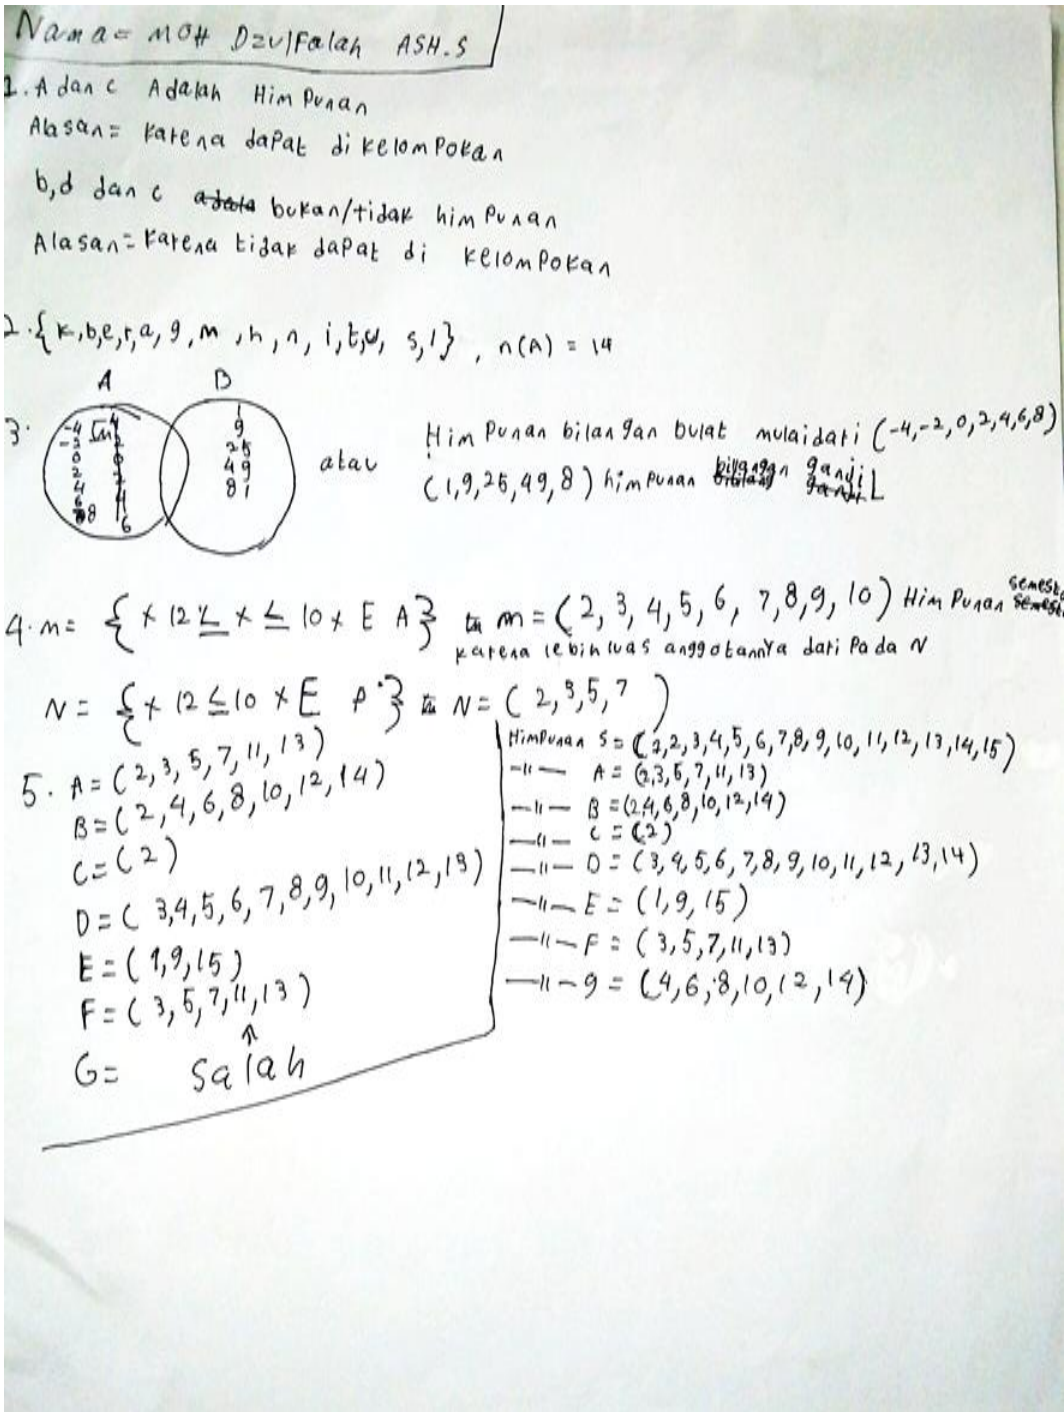 Nama = MOH Dzulfalah ASH.S
1. A dan c Adalah Himpunan
Alasan = karena dapat di kelompokan
b,d dan c bukan/tidak himpunan
Alasan = karena tidak dapat di kelompokan
2. {k,b,e,r,a,g,m,h,n,i,t,u,s,l}, n(A) = 14
A B
3.
-4
-2
0
2
4
6
8
1
9
25
49
81
atau
Himpunan bilangan bulat mulai dari (-4,-2,0,2,4,6,8)
(1,9,25,49,8) himpunan bilangan ganjil
4. m = {x 12 ≤ x ≤ 10 x E A} m = (2, 3, 4, 5, 6, 7,8,9, 10) Himpunan semesta
karena lebih luas anggotannya dari pada N
N = {x 12 ≤ 10 x E P} N = (2,3,5,7)
5. A = (2, 3, 5, 7, 11, 13)
B = (2, 4, 6, 8, 10, 12, 14)
C = (2)
D = (3,4, 5, 6, 7, 8, 9, 10, 11, 12, 13)
E = (1,9,15)
F = (3, 5, 7, 11, 13)
G = Salah
Himpunan S = (2,2,3,4,5,6,7,8,9,10,11,12,13,14,15)
-11- A = (2,3,5,7,11,13)
-11- B = (2,4,6,8,10,12,14)
-11- C = (2)
-11- D = (3,4,5,6,7,8,9,10,11,12,13,14)
-11- E = (1,9,15)
-11- F = (3,5,7,11,13)
-11- g = (4,6,8,10,12,14)